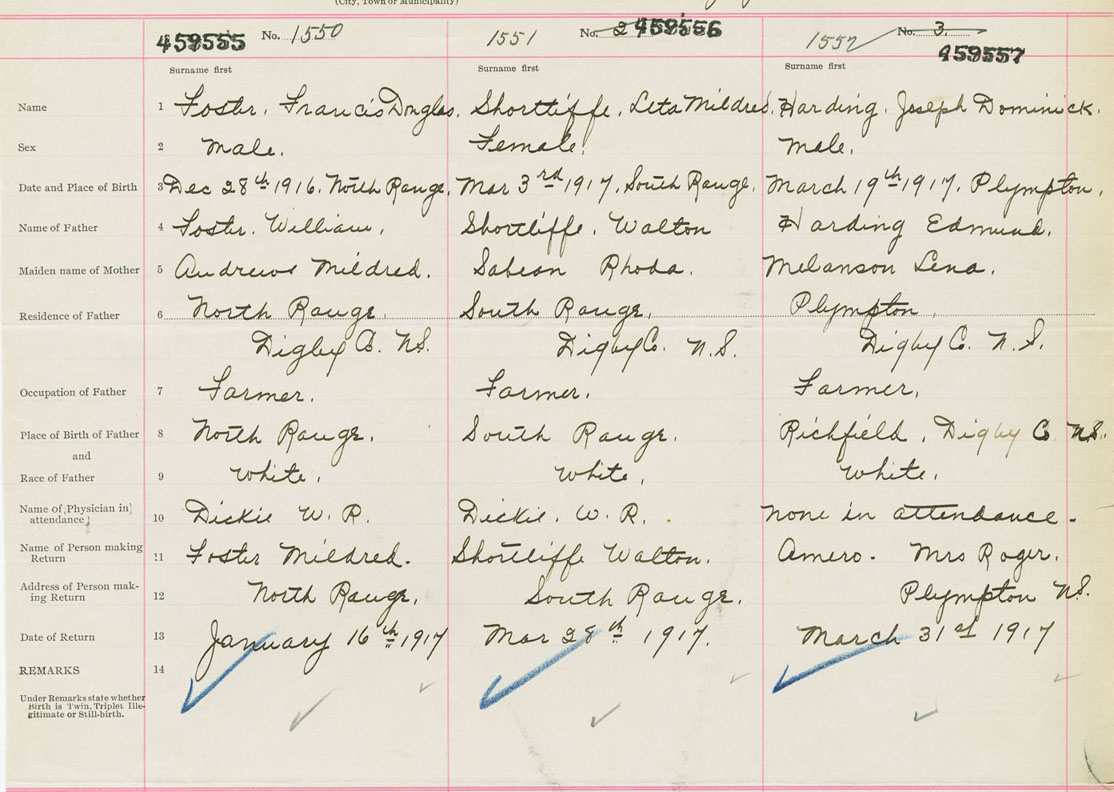 (City, Town or Municipality)
459555 No. 1550 1551 No. 2 459556 1552 No. 3. 459557
Surname first Surname first Surname first
Name 1 Foster. Francis Douglas. Shortliffe, Leta Mildred. Harding. Joseph Dominick.
Sex 2 Male. Female. Male.
Date and Place of Birth 3 Dec 28th 1916. North Range. Mar 3rd 1917, South Range. March 19th 1917. Plympton.
Name of Father 4 Foster. William. Shortliffe. Walton Harding Edmund.
Maiden name of Mother 5 Andrews Mildred. Sabean Rhoda. Melanson Lena.
Residence of Father 6 North Range. South Range. Plympton.
Digby Co. NS. Digby Co. N.S. Digby Co. N.S.
Occupation of Father 7 Farmer. Farmer. Farmer.
Place of Birth of Father 8 North Range. South Range. Richfield, Digby Co NS.
and
Race of Father 9 White. White. White.
Name of [Physician in
attendance] 10 Dickie W. R. Dickie. W. R. None in attendance.
Name of Person making
Return 11 Foster Mildred. Shortliffe Walton. Amero. Mrs Roger.
Address of Person mak-
ing Return 12 North Range. South Range. Plympton NS.
Date of Return 13 January 16th 1917 Mar 28th 1917. March 31st 1917
REMARKS 14
Under Remarks state whether
Birth is Twin, Triplet Ille-
gitimate or Still-birth.